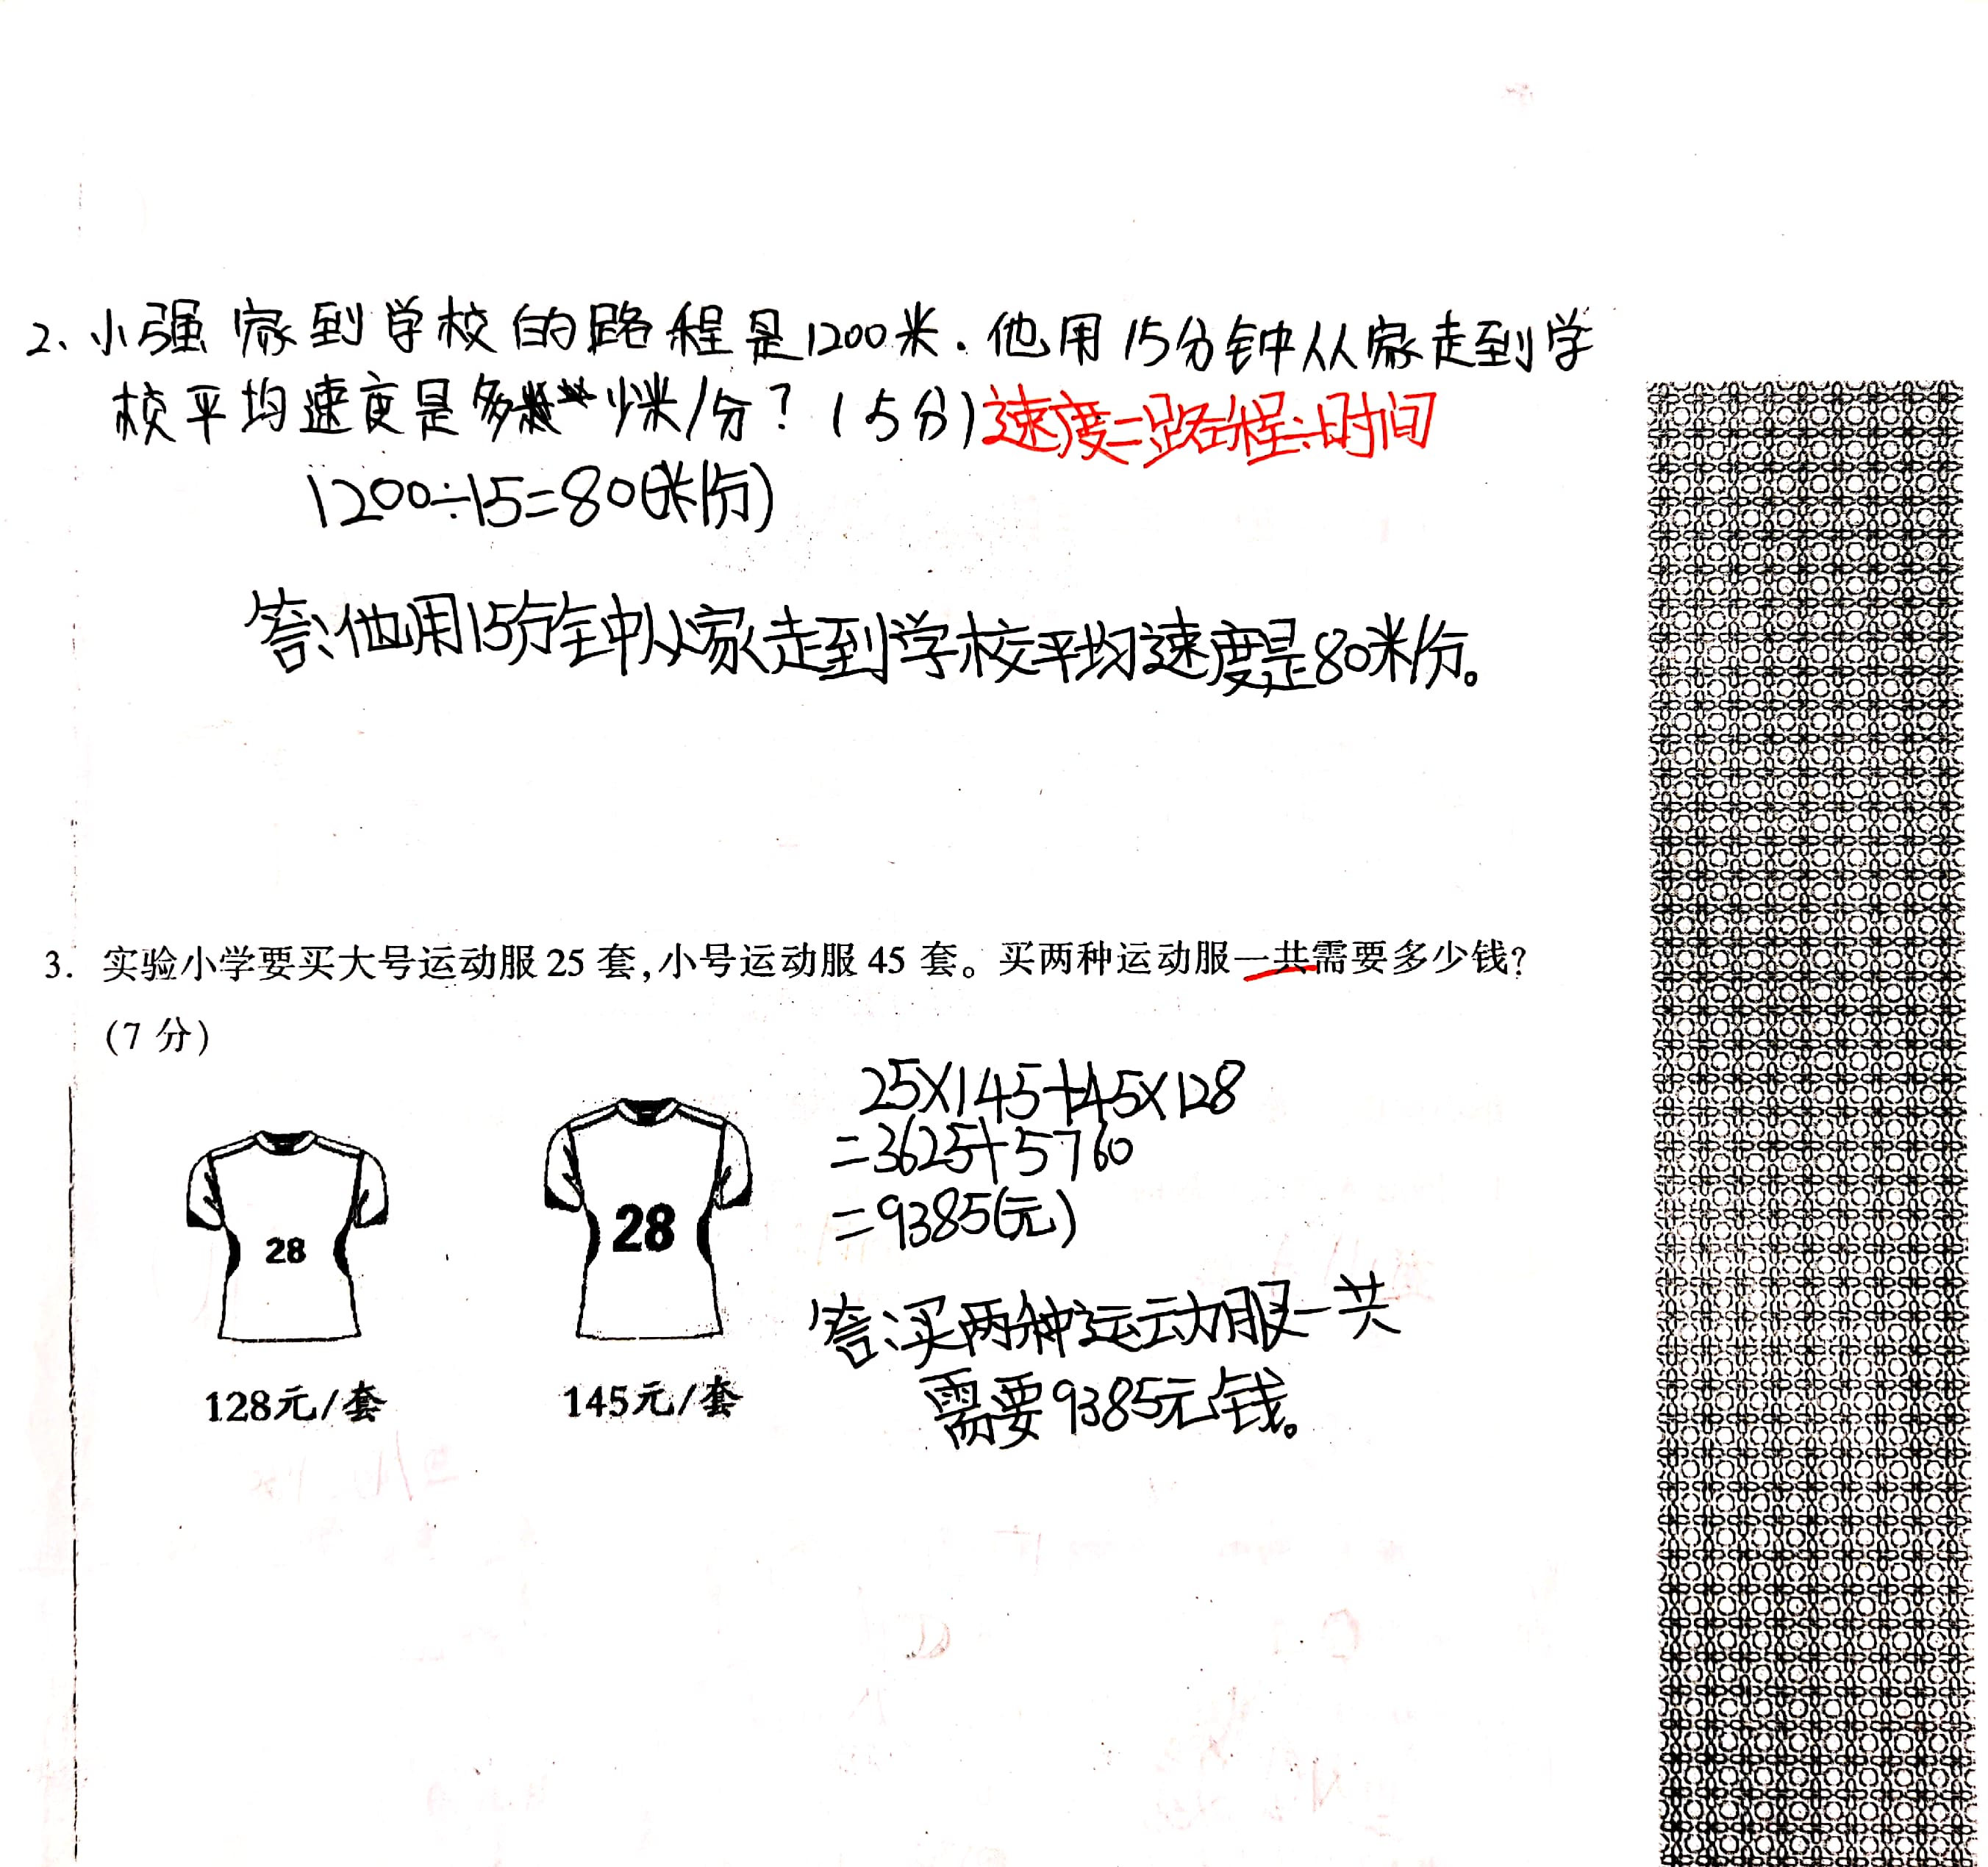 2、小强家到学校的路程是1200米.他用15分钟从家走到学
校平均速度是多少米/分?(5分)速度=路程÷时间
1200÷15=80(米/分)
答:他用15分钟从家走到学校平均速度是80米/分。
3. 实验小学要买大号运动服 25 套,小号运动服 45 套。买两种运动服一共需要多少钱?
(7 分)
25×145+45×128
=3625+5760
=9385(元)
28
28
答:买两种运动服一共
需要9385元钱。
128元/套
145元/套